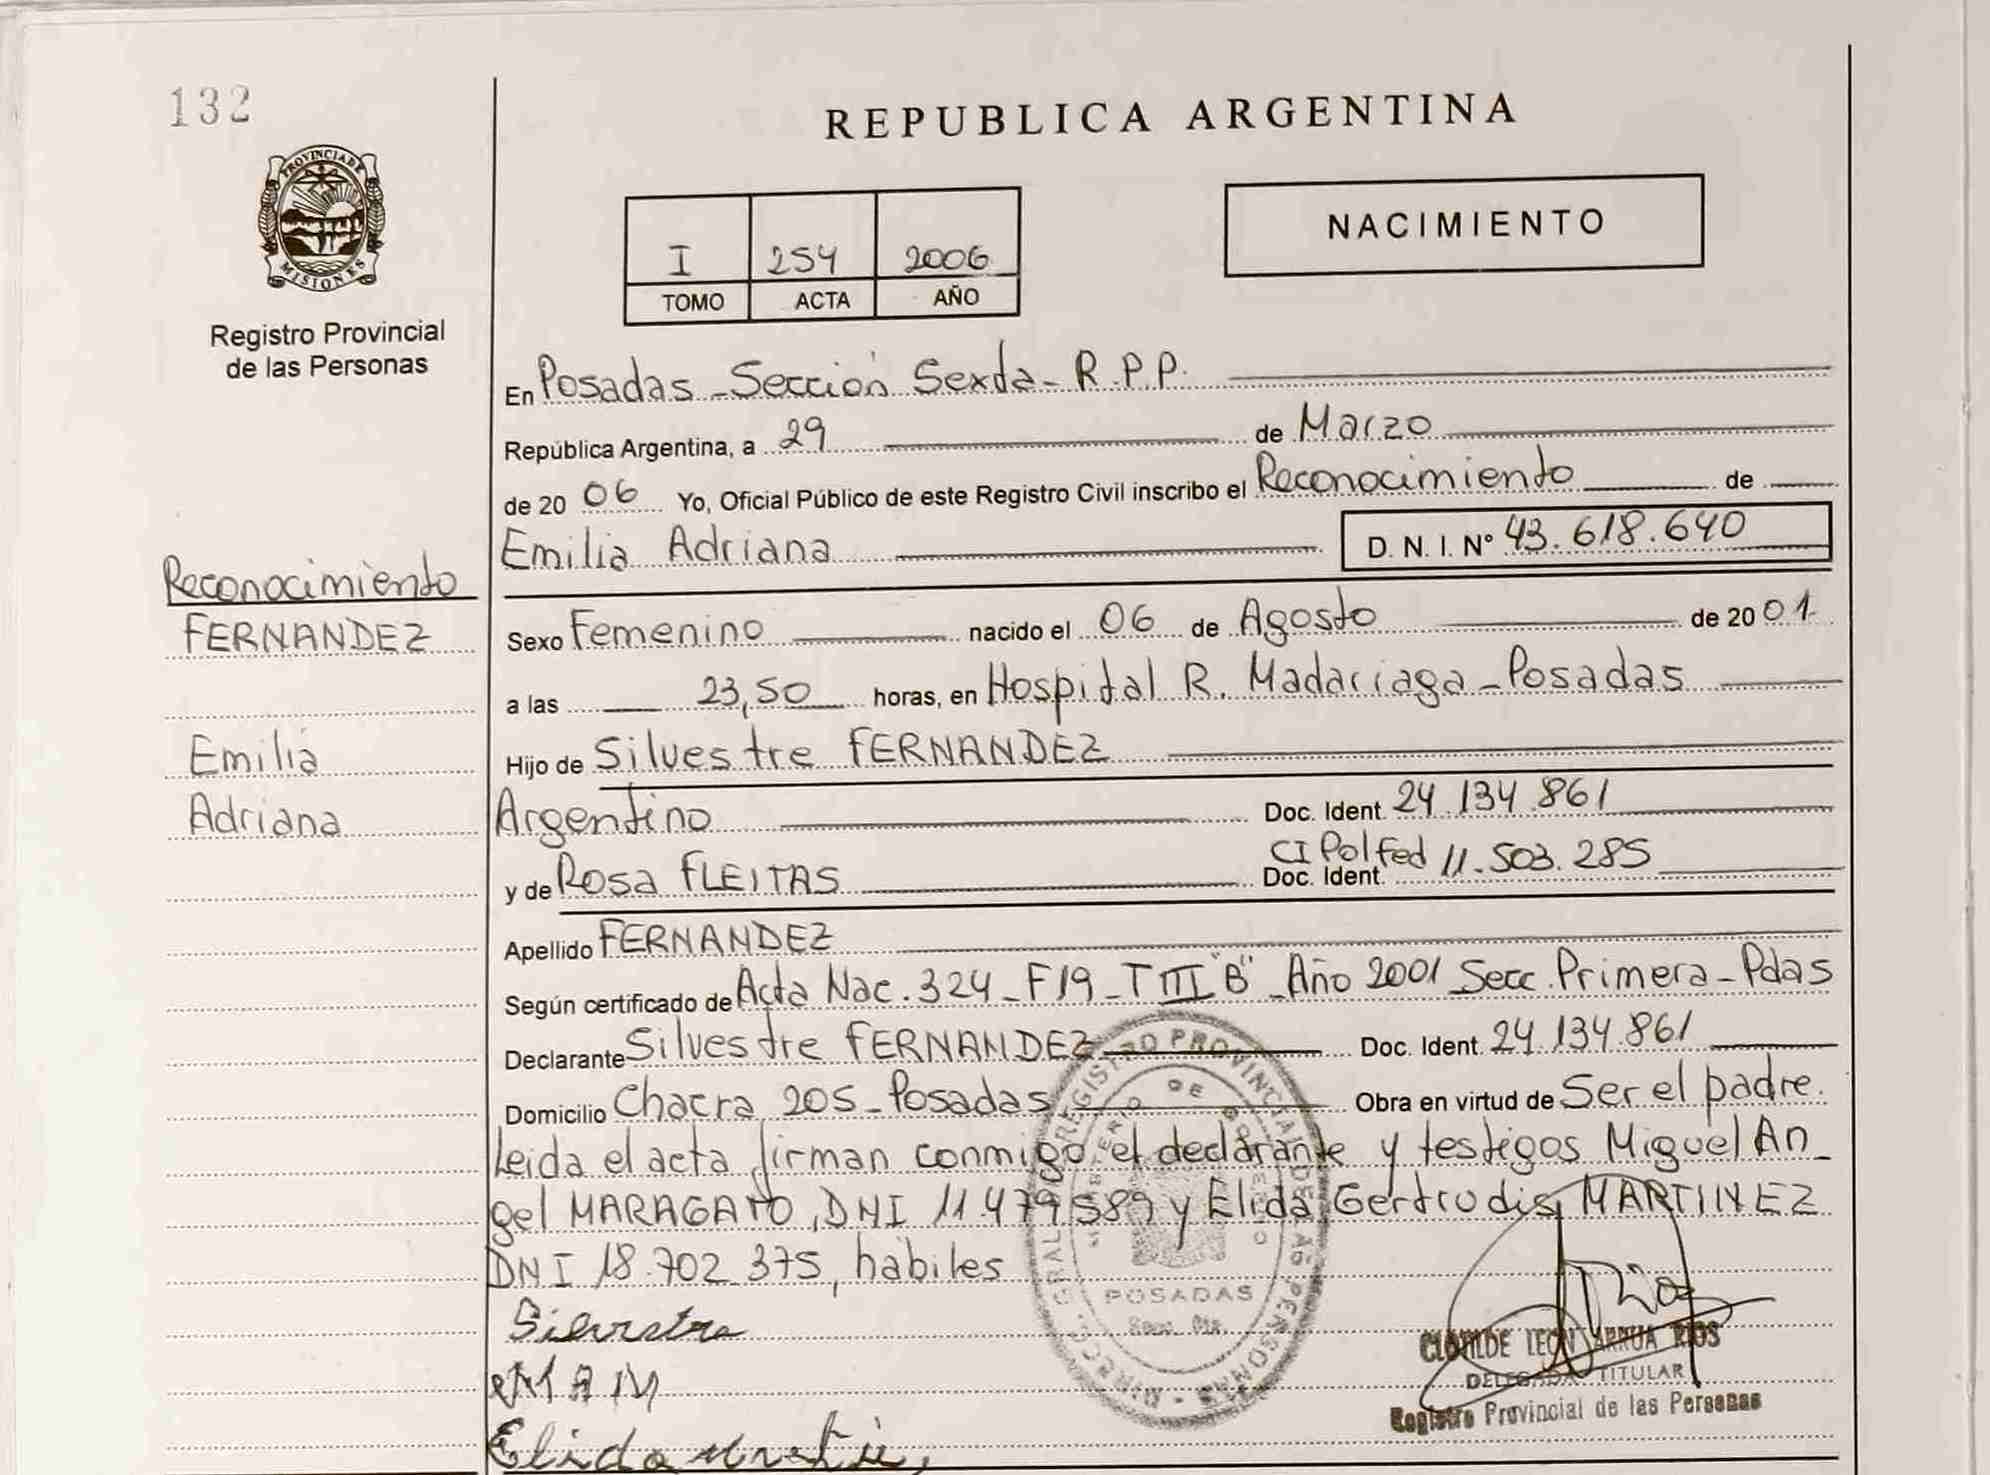 132
PROVINCIA DE
MISIONES
Registro Provincial
de las Personas
REPUBLICA ARGENTINA
I 254 2006
TOMO ACTA AÑO
NACIMIENTO
En Posadas - Sección Sexta - R.P.P.
República Argentina, a 29 de Marzo
de 20 06 Yo, Oficial Público de este Registro Civil inscribo el Reconocimiento de
Emilia Adriana D. N. I. Nº 43.618.640
Reconocimiento
FERNANDEZ
Emilia
Adriana
Sexo Femenino nacido el 06 de Agosto de 20 01
a las 23,50 horas, en Hospital R. Madariaga - Posadas
Hijo de Silvestre FERNANDEZ
Argentino Doc. Ident. 24.134.861
y de Rosa FLEITAS Doc. Ident. CI Pol Fed 11.503.285
Apellido FERNANDEZ
Según certificado de Acta Nac. 324 - F19 - T III "B" - Año 2001 Secc. Primera - Pdas
Declarante Silvestre FERNANDEZ Doc. Ident. 24.134.861
Domicilio Chacra 205 - Posadas Obra en virtud de Ser el padre.
Leida el acta firman conmigo el declarante y testigos Miguel An-
gel MARAGATO, DNI 11.479.589 y Elida Gertrudis MARTINEZ
DNI 18.702.375, hábiles
REGISTRO PROVINCIAL DE LAS PERSONAS
POSADAS
CLOTILDE LEON ARRUA RIOS
DELEGADA TITULAR
Registro Provincial de las Personas